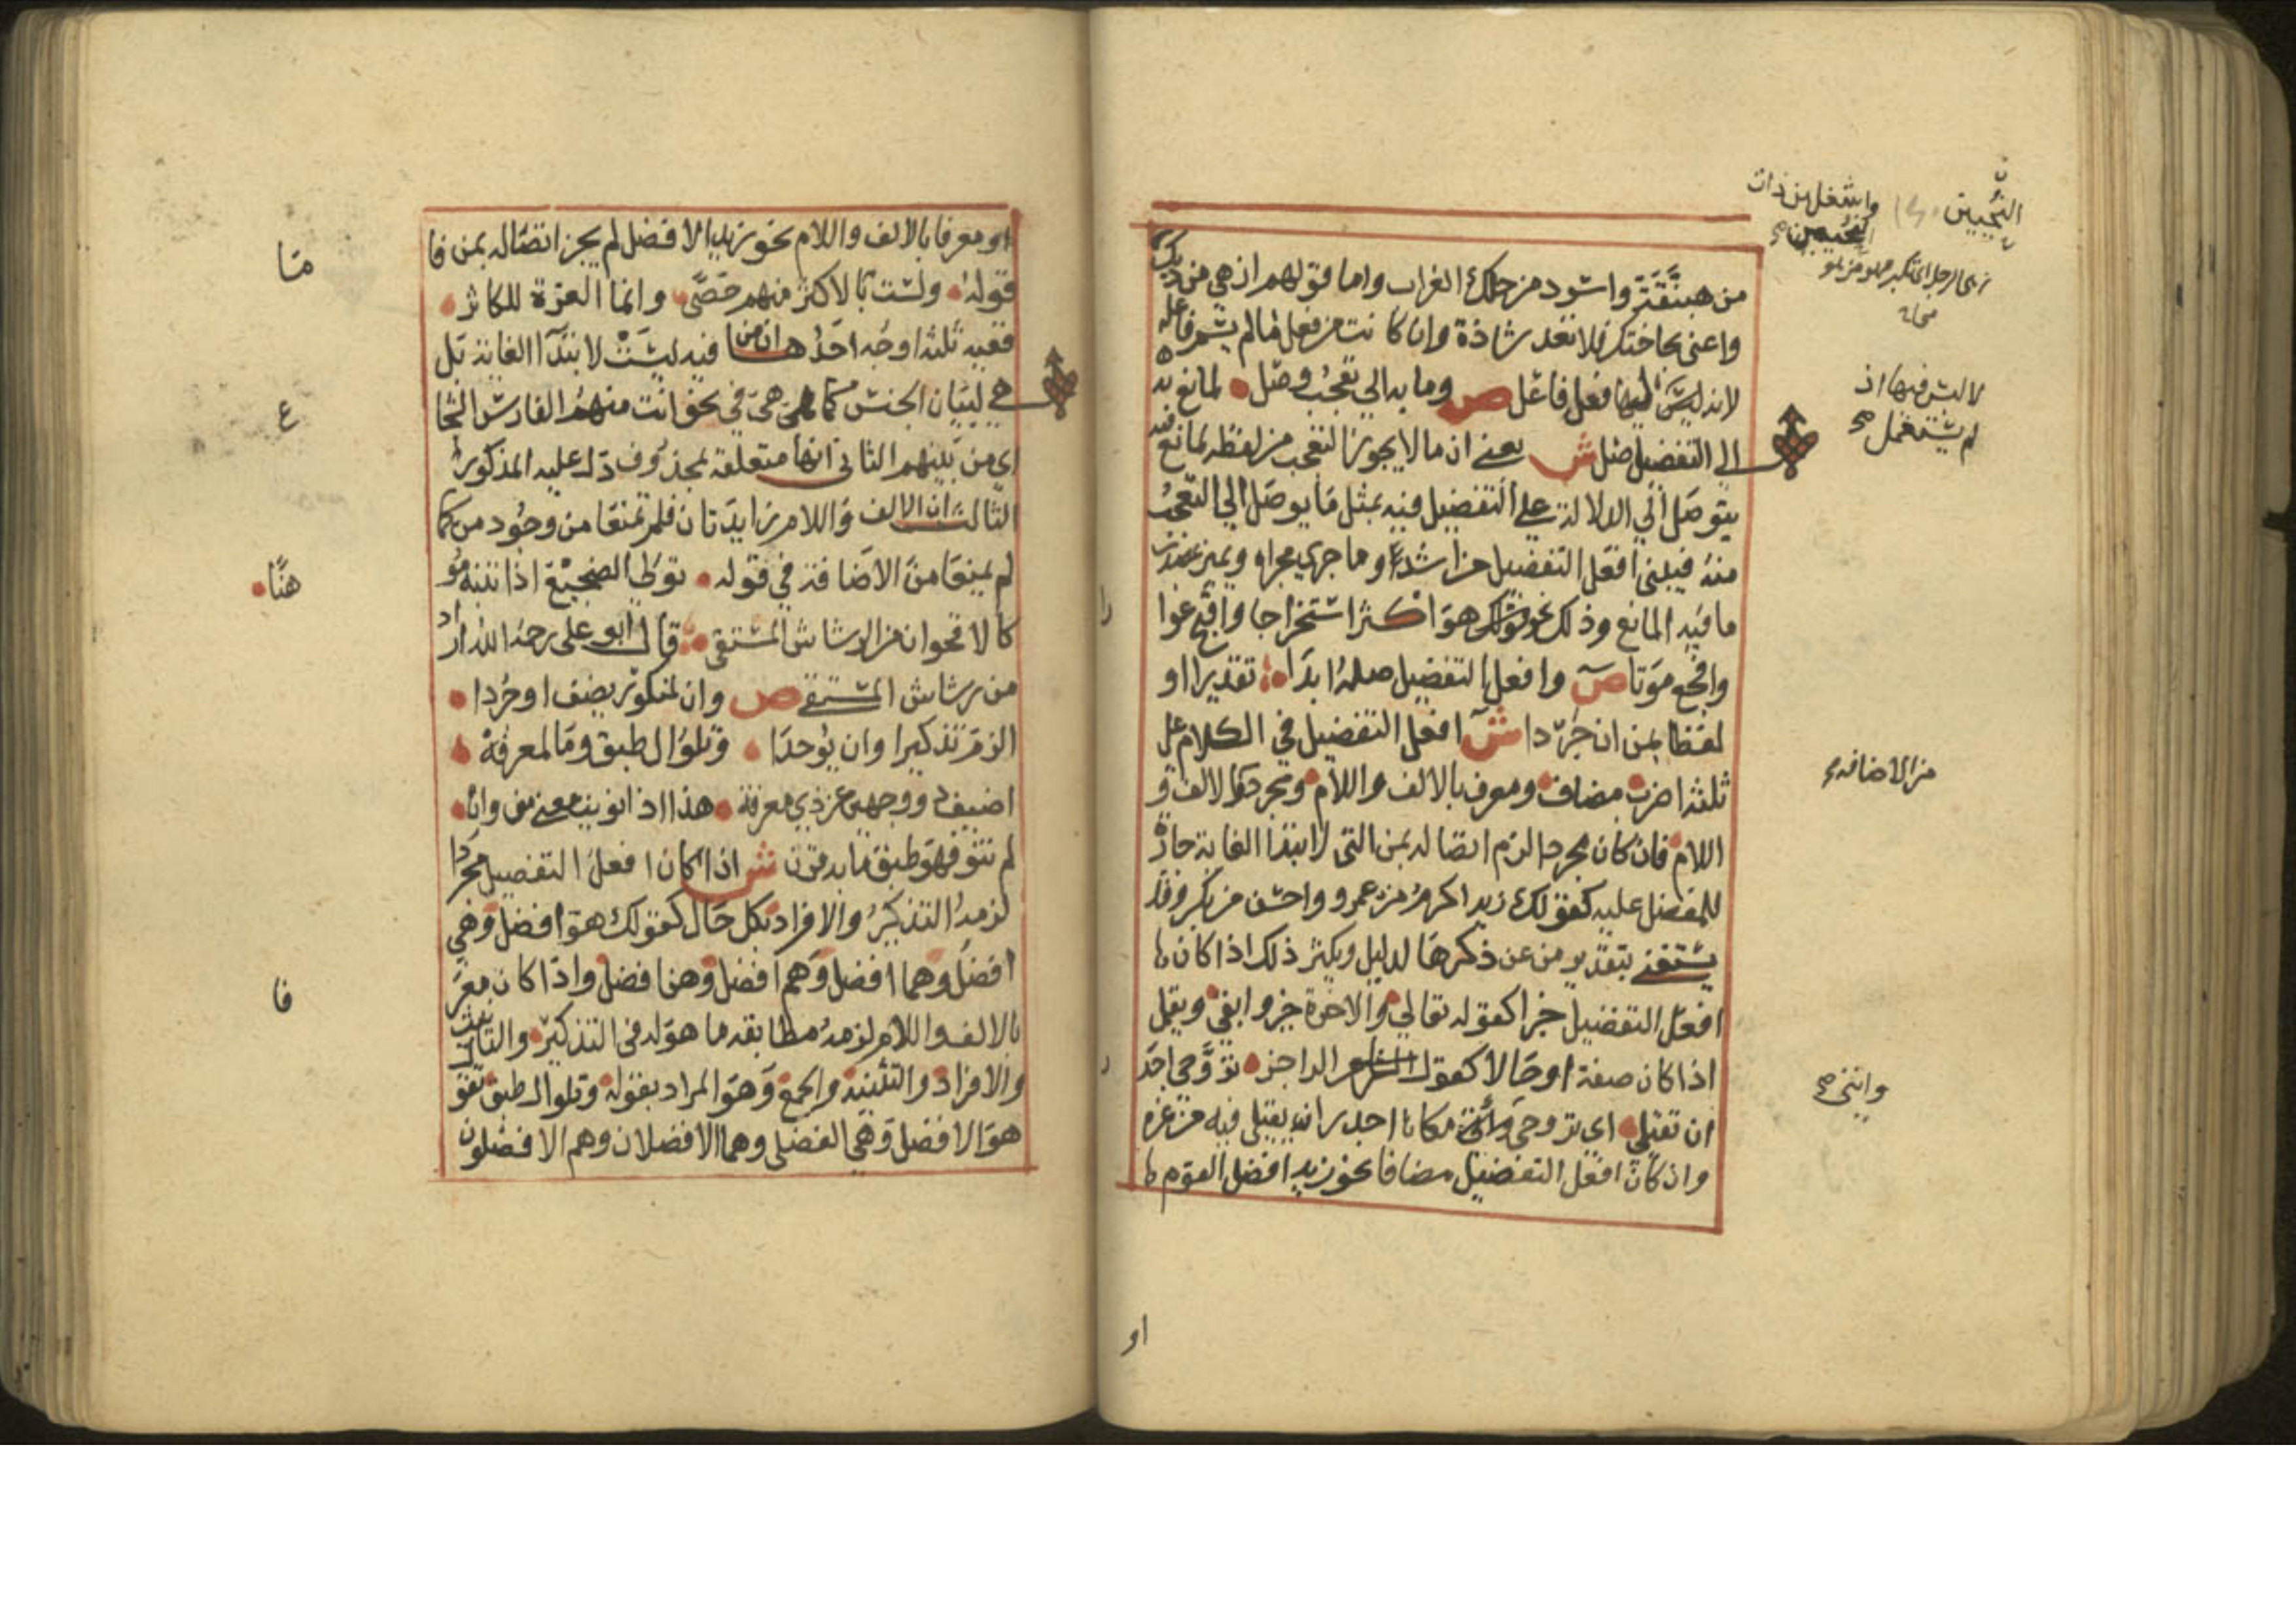 من هبنقة واسود من حلك الغراب واما قولهم ازهي من ديك
واعني بحاجتك فلا تعد شاذة وان كانت من فعل ما لم يسم فاعله
لانه لا لبس فيها اذ لم يستعمل لها فعل فاعل ص وما به الي تعجب وصل • لمانع به
الي التفضيل صل ش يعني ان ما لا يجوز التعجب من لفظه لمانع فيه
يتوصل الي الدلالة علي التفضيل فيه بمثل ما يوصل الي التعجب
منه فيبني افعل التفضيل من اشد او ما جري مجراه ويميز بمصدر
ما فيه المانع وذلك نحو قولك هو اكثر استخراجا واقبح عورا
وافجع موتا ص وافعل التفضيل صله ابدا • تقديرا او
لفظا بمن ان جردا ش افعل التفضيل في الكلام علي
ثلثة اضرب مضاف ومعرف بالالف واللام ومجرد من الاضافة والالف و
اللام فان كان مجردا لزم اتصاله بمن التي لابتدا الغاية جارة
للمفضل عليه كقولك زيد اكرم من عمرو واحسن من بكر وقد
يستغني بتقدير من عن ذكرها لدليل ويكثر ذلك اذا كان
افعل التفضيل خبرا كقوله تعالي والاخرة خير وابقي ويقل
اذا كان صفة او حالا كقول الراجز • تروحي اجدر
ان تقيلي • اي تروحي وائتي مكانا اجدر ان تقيلي فيه من غيره
وان كان افعل التفضيل مضافا نحو زيد افضل القوم
او
النحيين
واشغل من ذات
النحيين
لا لبس فيها اذ
لم يستعمل صح
من الاضافه
وائتي صح
او معرفا بالالف واللام نحو زيد الافضل لم يجز اتصاله بمن فاما
قوله • ولست بالاكثر منهم حصي • وانما العزة للكاثر •
ففيه ثلثة اوجه احدها ان من فيه ليست لابتدا الغاية بل
هي لبيان الجنس كما هي في نحو انت منهم الفارس الشجاع
اي من بينهم الثاني انها متعلقة بمحذوف دل عليه المذكور
الثالث ان الالف واللام زايدتان فلم تمنعا من وجود من كما
لم يمنعا من الاضافة في قوله • تولي الضجيع اذا تنبه موهنا •
كالاقحوان من الرشاش المستقي • قال ابو علي رحمه الله اراد
من رشاش المستقي ص وان لمنكور يضف او جردا •
الزم تذكيرا وان يوحدا • وتلو ال طبق وما لمعرفة •
اضيف ذو وجهين عن ذي معرفة • هذا اذا نويت معني من وان •
لم تنو فهو طبق ما به قرن ش اذا كان افعل التفضيل مجردا
لزمه التذكير والافراد بكل حال كقولك هو افضل وهي
افضل وهما افضل وهم افضل وهن افضل واذا كان معرفا
بالالف واللام لزمه مطابقة ما هو له في التذكير والتانيث
والافراد والتثنية والجمع وهو المراد بقوله وتلو ال طبق تقول
هو الافضل وهي الفضلي وهما الافضلان وهم الافضلون